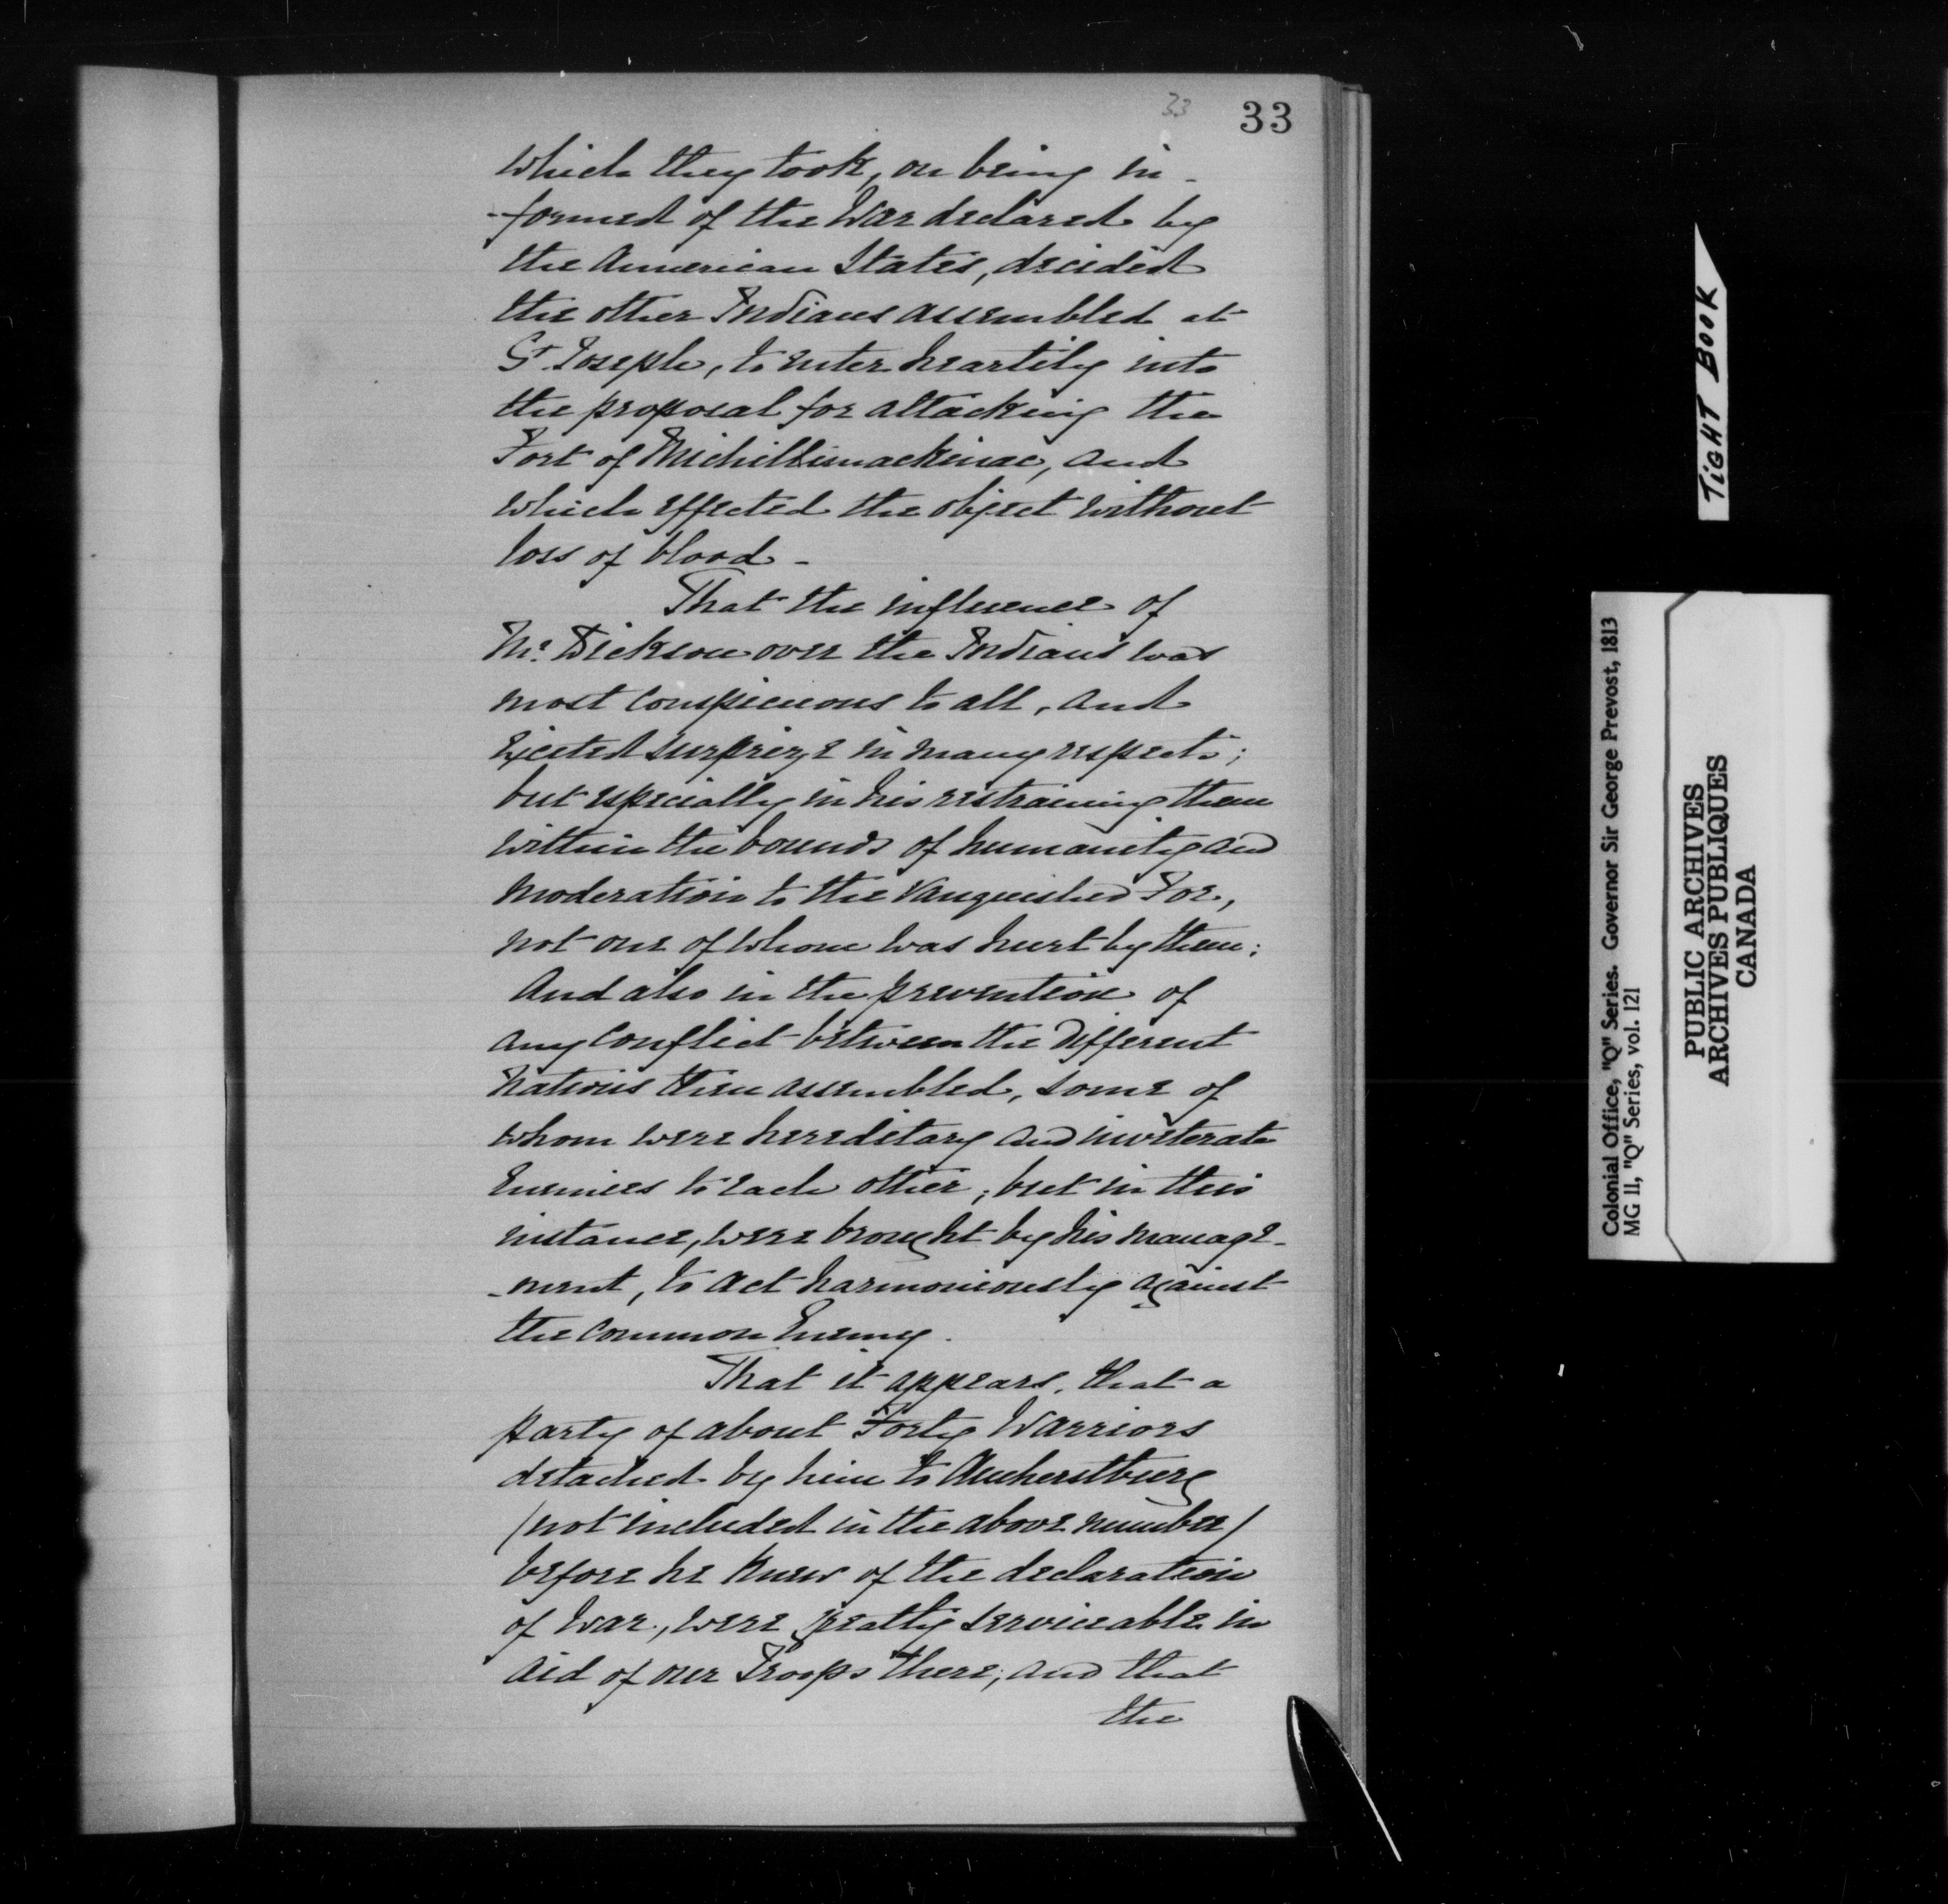 33
33
which they took, on being in-
-formed of the War declared by
the American States, decided
the other Indians assembled at
St. Joseph, to enter heartily into
the proposal for attacking the
Fort of Michillimackinac, and
which effected the object without
loss of blood -
That the influence of
Mr. Dickson over the Indians was
most conspicuous to all, and
excited surprize in many respects;
but especially in his restraining them
within the bounds of humanity and
moderation to the vanquished Foe,
not one of whom was hurt by them:
And also in the prevention of
any conflict between the different
Nations then assembled, some of
whom were hereditary and inveterate
Enemies to each other; but in this
instance, were brought by his manage-
-ment, to act harmoniously against
the common Enemy.
That it appears, that a
party of about Forty Warriors
detached by him to Amherstburg
(not included in the above number)
before he knew of the declaration
of War, were greatly serviceable in
aid of our Troops there; and that
the
TIGHT BOOK
Colonial Office, "Q" Series. Governor Sir George Prevost, 1813
MG 11, "Q" Series, vol. 121
PUBLIC ARCHIVES
ARCHIVES PUBLIQUES
CANADA